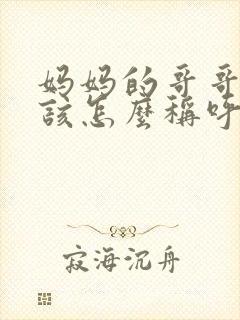 妈妈的哥哥
該怎麼稱呼
寂海沉舟